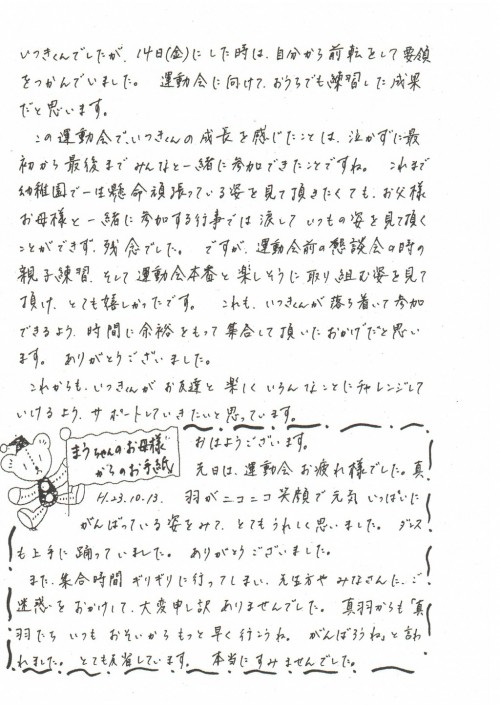 いつきくんでしたが、14日(金)にした時は、自分から前転をして要領
をつかんでいました。 運動会に向けて、おうちでも練習した成果
だと思います。
この運動会で、いつきくんの成長を感じたことは、泣かずに最
初から最後までみんなと一緒に参加できたことですね。 これまで
幼稚園で一生懸命頑張っている姿を見て頂きたくても、お父様
お母様と一緒に参加する行事では涙していつもの姿を見て頂く
ことができず、残念でした。 ですが、運動会前の懇談会の時の
親子練習、そして運動会本番と楽しそうに取り組む姿を見て
頂け、とても嬉しかったです。 これも、いつきくんが落ち着いて参加
できるよう、時間に余裕をもって集合して頂いたおかげだと思い
ます。 ありがとうございました。
これからも、いつきくんがお友達と楽しくいろんなことにチャレンジして
いけるよう、サポートしていきたいと思っています。
まうちゃんのお母様
からのお手紙
H.23.10.13.
おはようございます。
先日は、運動会お疲れ様でした。真
羽がニコニコ笑顔で元気いっぱいに
がんばっている姿をみて、とてもうれしく思いました。 ダンス
も上手に踊っていました。 ありがとうございました。
また、集合時間ギリギリに行ってしまい、先生方やみなさんに、ご
迷惑をおかけして、大変申し訳ありませんでした。 真羽からも「真
羽たちいつもおそいからもっと早く行こうね。 がんばろうね」と言わ
れました。 とても反省しています。 本当にすみませんでした。